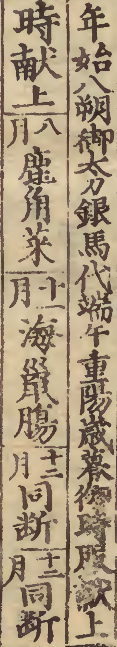 年始八朔御太刀銀馬代端午重陽歳暮御時服献上
時献上 八月 鹿角菜 十一月 海鼠腸 十二月 同断 十二月 同断